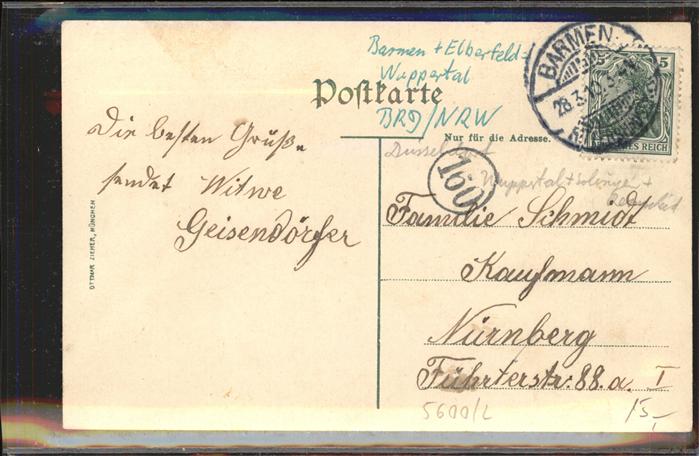 Barmen + Elberfeld =
Wuppertal
BRD/NRW
Postkarte
Nur für die Adresse.
BARMEN
28.3.10.
5
DEUTSCHES REICH
Düsseldorf
Wuppertal + Solingen +
160
Die besten Grüße
sendet Witwe
Geisendörfer
OTTMAR ZIEHER, MÜNCHEN
Familie Schmidt
Kaufmann
Nürnberg
Führterstr: 88. a. I
5600/2
15,-